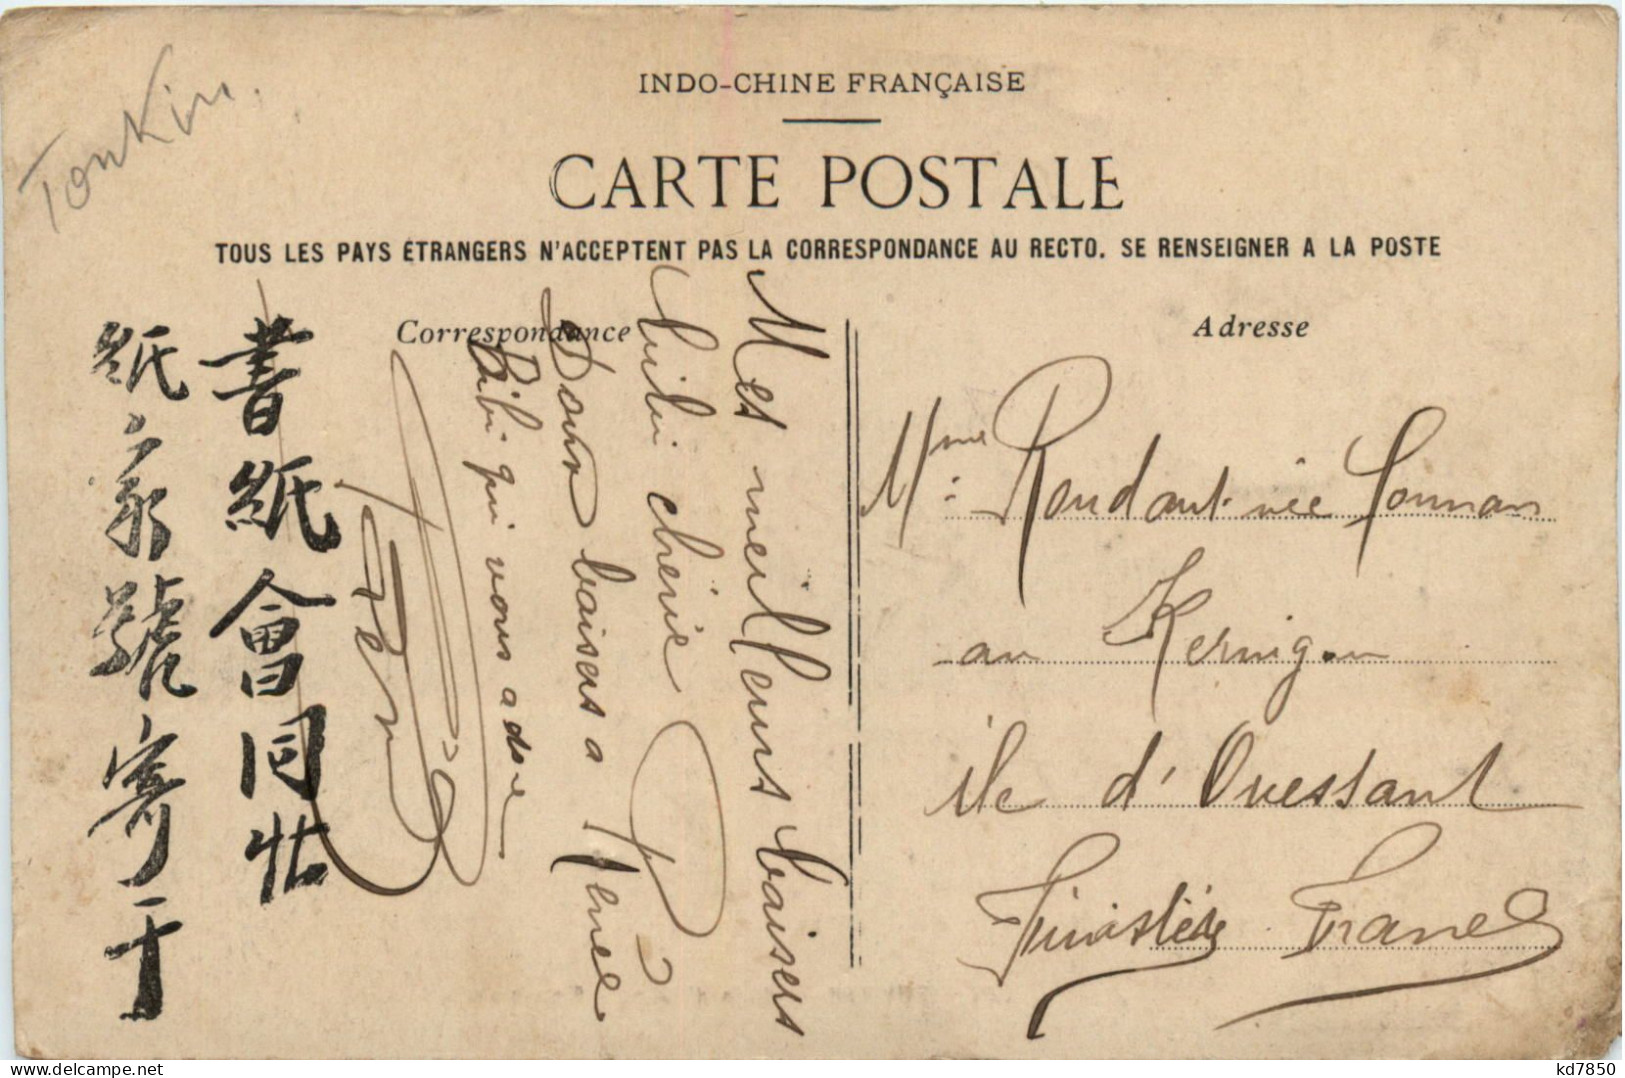 Tonkin.
INDO-CHINE FRANÇAISE
CARTE POSTALE
TOUS LES PAYS ÉTRANGERS N'ACCEPTENT PAS LA CORRESPONDANCE AU RECTO. SE RENSEIGNER A LA POSTE
Correspondance
Mes meilleurs baisers
chérie
Doux baisers a
Bibi qui vous adore
書紙會同
紙家號寄于
Adresse
Mme: née
au
ile d'Ouessant
Finistère France
delcampe.net
kd7850